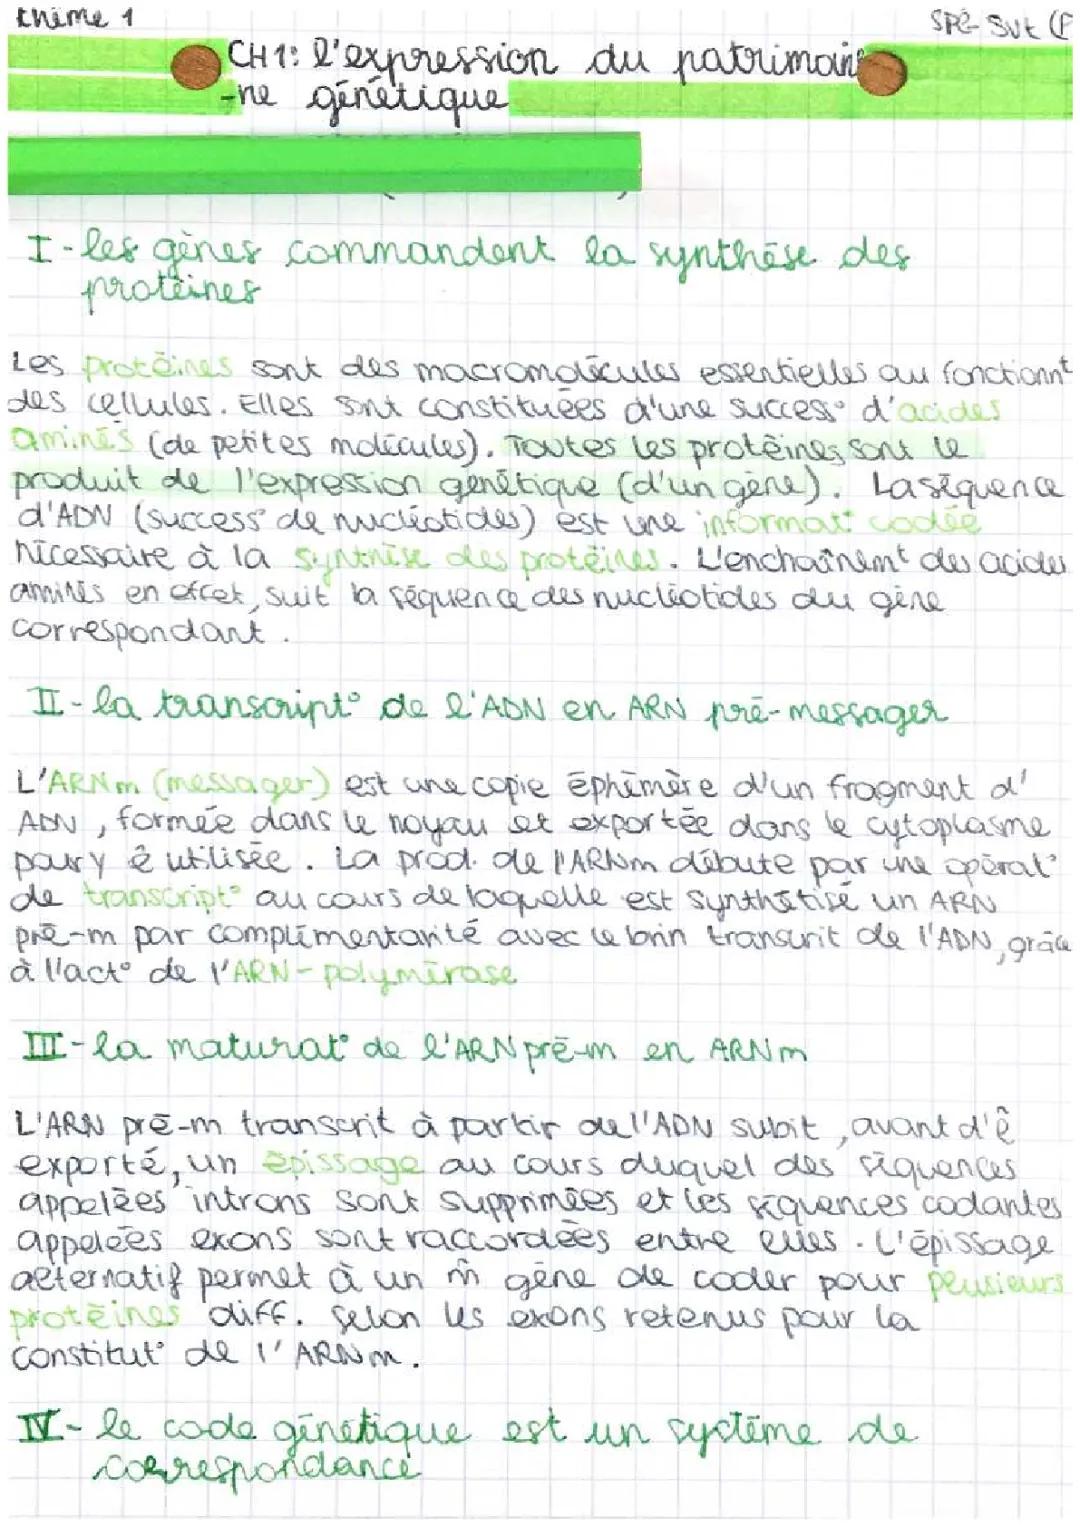 thème 1
SPÉ SVt (P
CH1: l'expression du patrimoin
-ne génétique
I - les gènes commandent la synthèse des
protéines
Les protéines sont des macromolécules essentielles au fonctionnt
des cellules. Elles sont constituées d'une success° d'acides
aminés (de petites molécules). Toutes les protéines sont le
produit de l'expression génétique (d'un gène). La séquence
d'ADN (success° de nucléotides) est une informat° codée
nécessaire à la synthèse des protéines. L'enchaînemt des acides
aminés en effet, suit la séquence des nucléotides du gène
correspondant.
II - la transcript° de l'ADN en ARN pré-messager
L'ARNm (messager) est une copie éphémère d'un fragment d'
ADN, formée dans le noyau et exportée dans le cytoplasme
pour y ê utilisée. La prod. de l'ARNm débute par une opérat°
de transcript° au cours de laquelle est synthétisé un ARN
pré-m par complémentarité avec le brin transcrit de l'ADN, grâce
à l'act° de l'ARN-polymérase
III - la maturat° de l'ARN pré-m en ARNm
L'ARN pré-m transcrit à partir de l'ADN subit, avant d'ê
exporté, un épissage au cours duquel des séquences
appelées introns sont supprimées et les séquences codantes
appelées exons sont raccordées entre elles. L'épissage
alternatif permet à un m̂ gène de coder pour plusieurs
protéines diff. selon les exons retenus pour la
constitut° de l'ARNm.
IV - le code génétique est un système de
correspondance